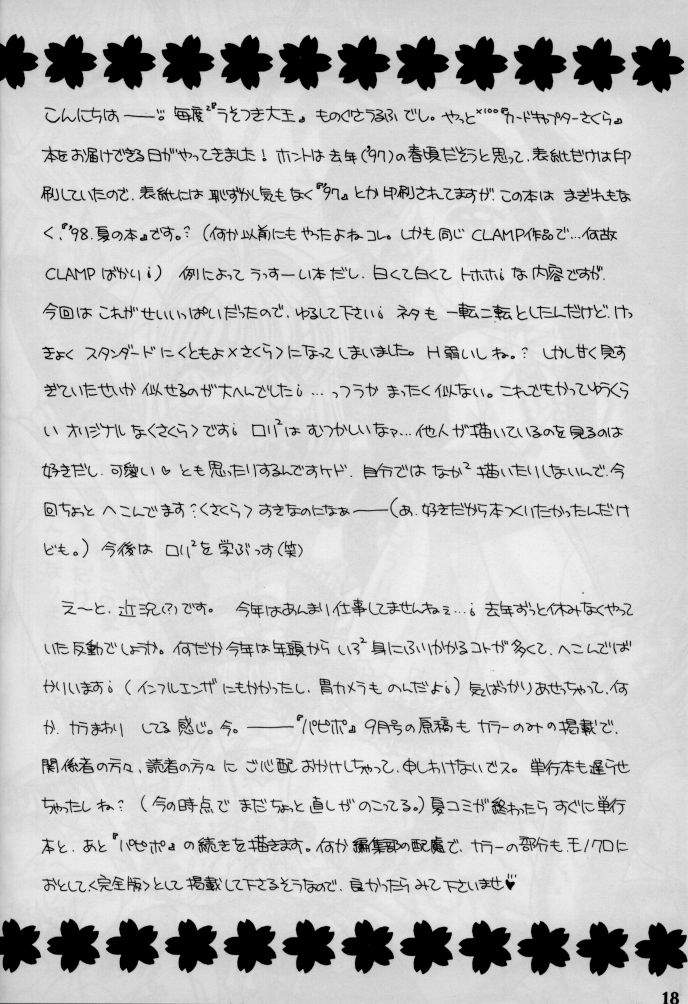 こんにちはー──。毎度²『うそつき大王』ものぐさうるふでし。やっと×100『カードキャプターさくら』
本をお届けできる日がやってきました！ホントは去年('97)の春頃だそうと思って、表紙だけは印
刷していたので、表紙には恥ずかし気もなく『'97』とか印刷されてますが、この本はまぎれもな
く、『'98.夏の本』です。？（何か以前にもやったよねコレ。しかも同じCLAMP作品で…何故
CLAMPばかり¡）例によってうっすーい本だし、白くて白くてトホホ¡な内容ですが、
今回はこれがせいいっぱいだったので、ゆるして下さい¡ネタも一転二転としたんだけど、けっ
きょくスタンダードに〈ともよ×さくら〉になってしまいました。H弱いしね。？しかし甘く見す
ぎていたせいか似せるのが大へんでした¡…っつうかまったく似ない。これでもかってゆうくら
いオリジナルな〈さくら〉です¡ロリ²はむつかしいなァ…他人が描いているのを見るのは
好きだし、可愛い♡とも思ったりするんですケド、自分ではなか²描いたりしないんで、今
回ちょっとへこんでます？〈さくら〉すきなのになぁー──（あ、好きだから本つくりたかったんだけ
ども。）今後はロリ²を学ぶっす(笑)
え〜と、近況(?)です。今年はあんまり仕事してませんねぇ…¡去年ずっと休みなくやって
いた反動でしょうか。何だか今年は年頭からいろ²身にふいかかるコトが多くて、へこんでば
かりいます¡（インフルエンザにもかかったし、胃カメラものんだよ¡）気ばっかりあせっちゃって、何
か、カラまわりしてる感じ。今。ー──『パピポ』9月号の原稿もカラーのみの掲載で、
関係者の方々、読者の方々にご心配おかけしちゃって、申しわけないでス。単行本も遅らせ
ちゃったしね？（今の時点でまだちょっと直しがのこってる。）夏コミが終わったらすぐに単行
本と、あと『パピポ』の続きを描きます。何か編集部の配慮で、カラーの部分も、モノクロに
おとして〈完全版〉として掲載して下さるそうなので、良かったらみて下さいませ♥
18